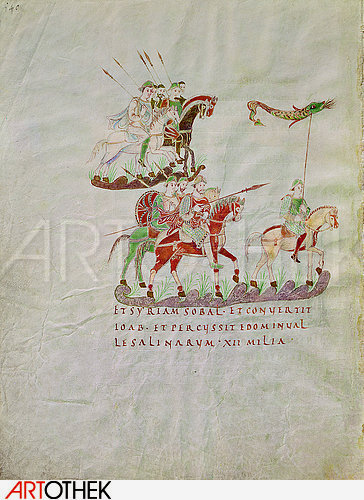 140
ARTOTHEK
ET SYRIAM SOBAL · ET CONVERTIT
IOAB · ET PERCUSSIT EDOM IN VAL
LE SALINARUM · XII MILIA
ARTOTHEK